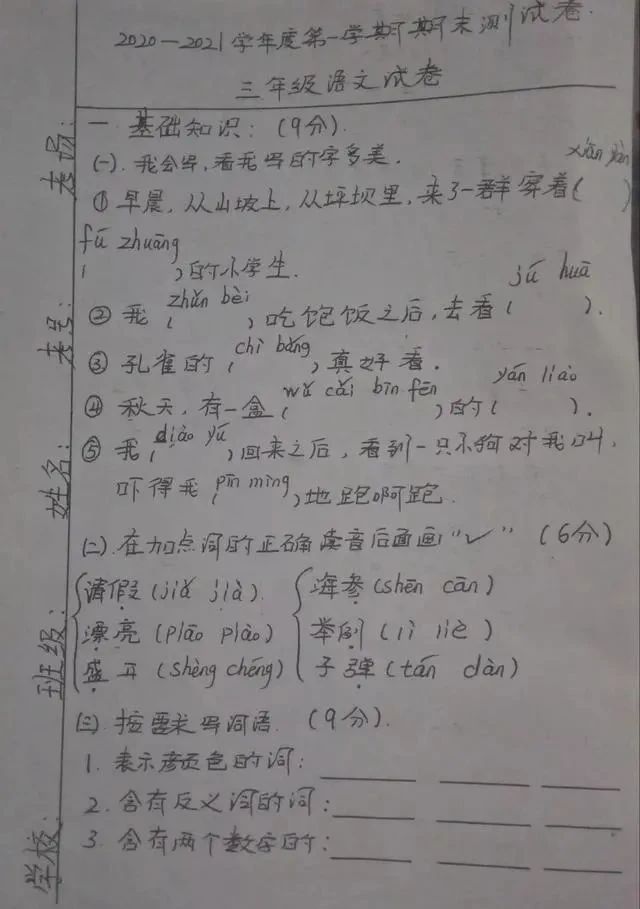 2020—2021学年度第一学期期末测试卷.
三年级语文试卷
一 基础知识:(9分).
(一).我会写,看我写的字多美.
xiān yàn
①早晨,从山坡上,从坪坝里,来了一群穿着( )
fú zhuāng
( )的小学生.
zhǔn bèi jú huā
②我( )吃饱饭之后,去看( ).
chì bǎng
③孔雀的( )真好看.
wǔ cǎi bīn fēn yán liào
④秋天,有一盒( )的( ).
diào yú
⑤我( )回来之后,看到一只小狗对我叫,
pīn mìng
吓得我( )地跑啊跑.
(二).在加点词的正确读音后面画"✓"(6分)
请假(jiǎ jià) 海参(shēn cān)
漂亮(piāo piào) 举例(lì liè)
盛开(shèng chéng) 子弹(tán dàn)
(三)按要求写词语.(9分).
1.表示颜色的词:
2.含有反义词的词:
3.含有两个数字的:
学校: 班级: 姓名: 考号: 考场: